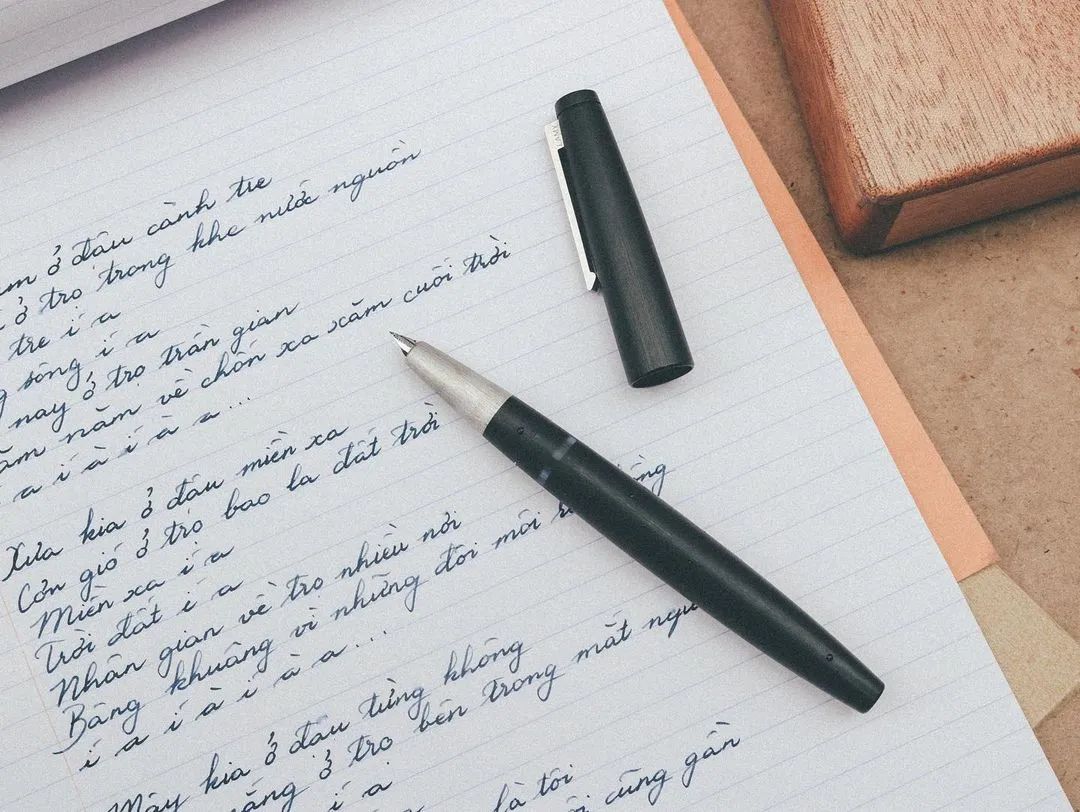 ở đâu cành tre
ở trọ trong khe nước nguồn
tre í a
sông í a
nay ở trọ trần gian
năm về chốn xa xăm cuối trời
a í à í à a...
Xưa kia ở đâu miền xa
Cơn gió ở trọ bao la đất trời
Miền xa í a
Trời đất í a
Nhân gian về trọ nhiều nơi
Bâng khuâng vì những đôi môi
í a í à í à a...
Mây kia ở đâu từng không
ở trọ bên trong mắt
í a
là tôi
cũng gần
LAMY